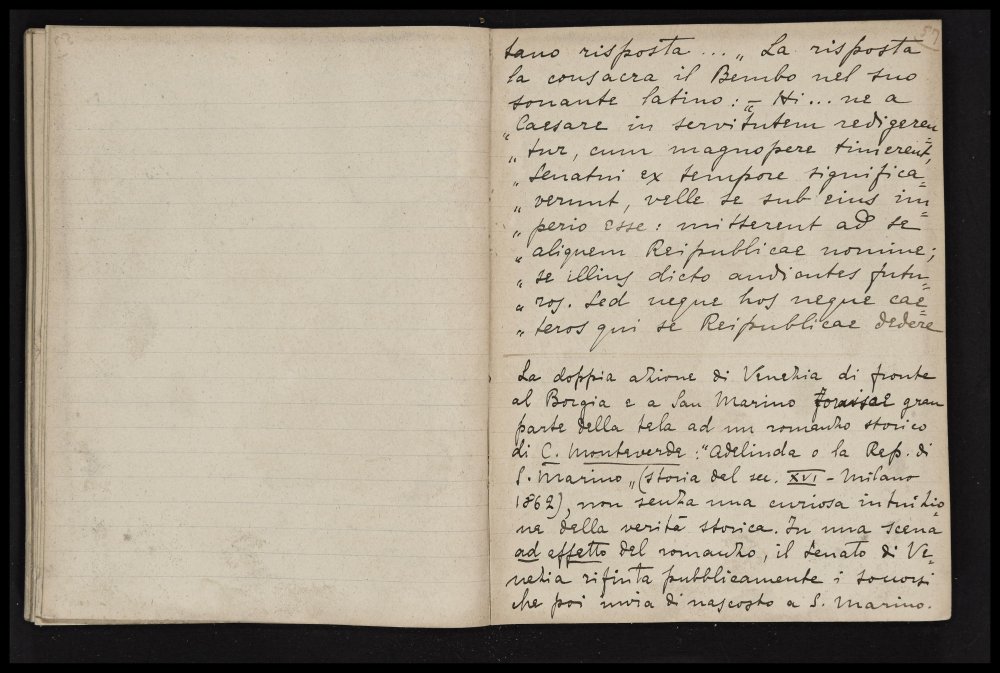 57
tano risposta ... „ La risposta
la consacra il Bembo nel suo
sonante latino: „ – Hi ... ne a
„ Caesare in servitutem redigeren=
„ tur, cum magnopere timerent,
„ Senatui ex tempore significa=
„ verunt, velle se sub eius im=
„ perio esse: mitterent ad se
„ aliquem Reipublicae nomine;
„ se illius dicto audientes futu=
„ ros. Sed neque hos neque cae=
„ teros qui se Reipublicae dedere
La doppia azione di Venezia di fronte
al Borgia e a San Marino fornisce gran
parte della tela ad un romanzo storico
di C. Monteverde: "Adelinda o la Rep. di
S. Marino „ (storia del sec. XVI - Milano
1862), non senza una curiosa intuizio=
ne della verità storica. In una scena
ad effetto del romanzo, il Senato di Ve=
nezia rifiuta pubblicamente i soccorsi
che poi invia di nascosto a S. Marino.